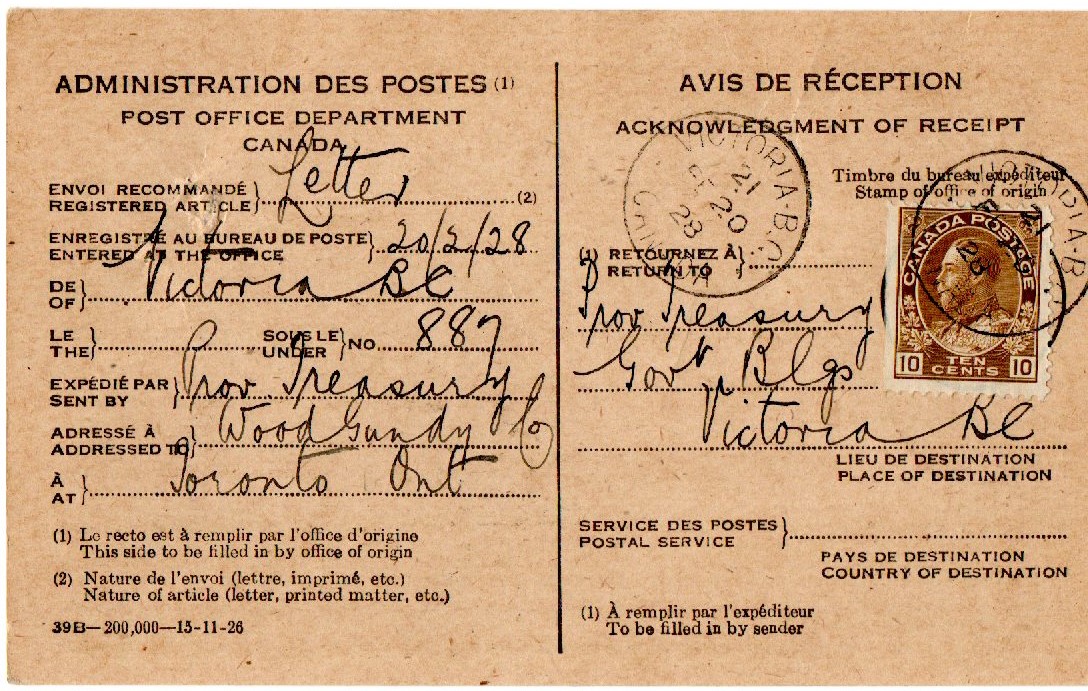 ADMINISTRATION DES POSTES (1)
POST OFFICE DEPARTMENT
CANADA
ENVOI RECOMMANDÉ
REGISTERED ARTICLE } Letter (2)
ENREGISTRÉ AU BUREAU DE POSTE
ENTERED AT THE OFFICE } 20/2/28
DE
OF } Victoria BC
LE
THE } SOUS LE
UNDER } NO 887
EXPÉDIÉ PAR
SENT BY } Prov. Treasury
ADRESSÉ À
ADDRESSED TO } Wood Gundy Co
À
AT } Toronto Ont
(1) Le recto est à remplir par l'office d'origine
This side to be filled in by office of origin
(2) Nature de l'envoi (lettre, imprimé, etc.)
Nature of article (letter, printed matter, etc.)
39B—200,000—15-11-26
AVIS DE RÉCEPTION
ACKNOWLEDGMENT OF RECEIPT
VICTORIA·B.C.
21
20
28
Timbre du bureau expéditeur
Stamp of office of origin
(1) RETOURNEZ À
RETURN TO }
Prov Treasury
Govt Blgs
Victoria BC
CANADA POSTAGE
10 TEN CENTS 10
LIEU DE DESTINATION
PLACE OF DESTINATION
SERVICE DES POSTES
POSTAL SERVICE }
PAYS DE DESTINATION
COUNTRY OF DESTINATION
(1) À remplir par l'expéditeur
To be filled in by sender